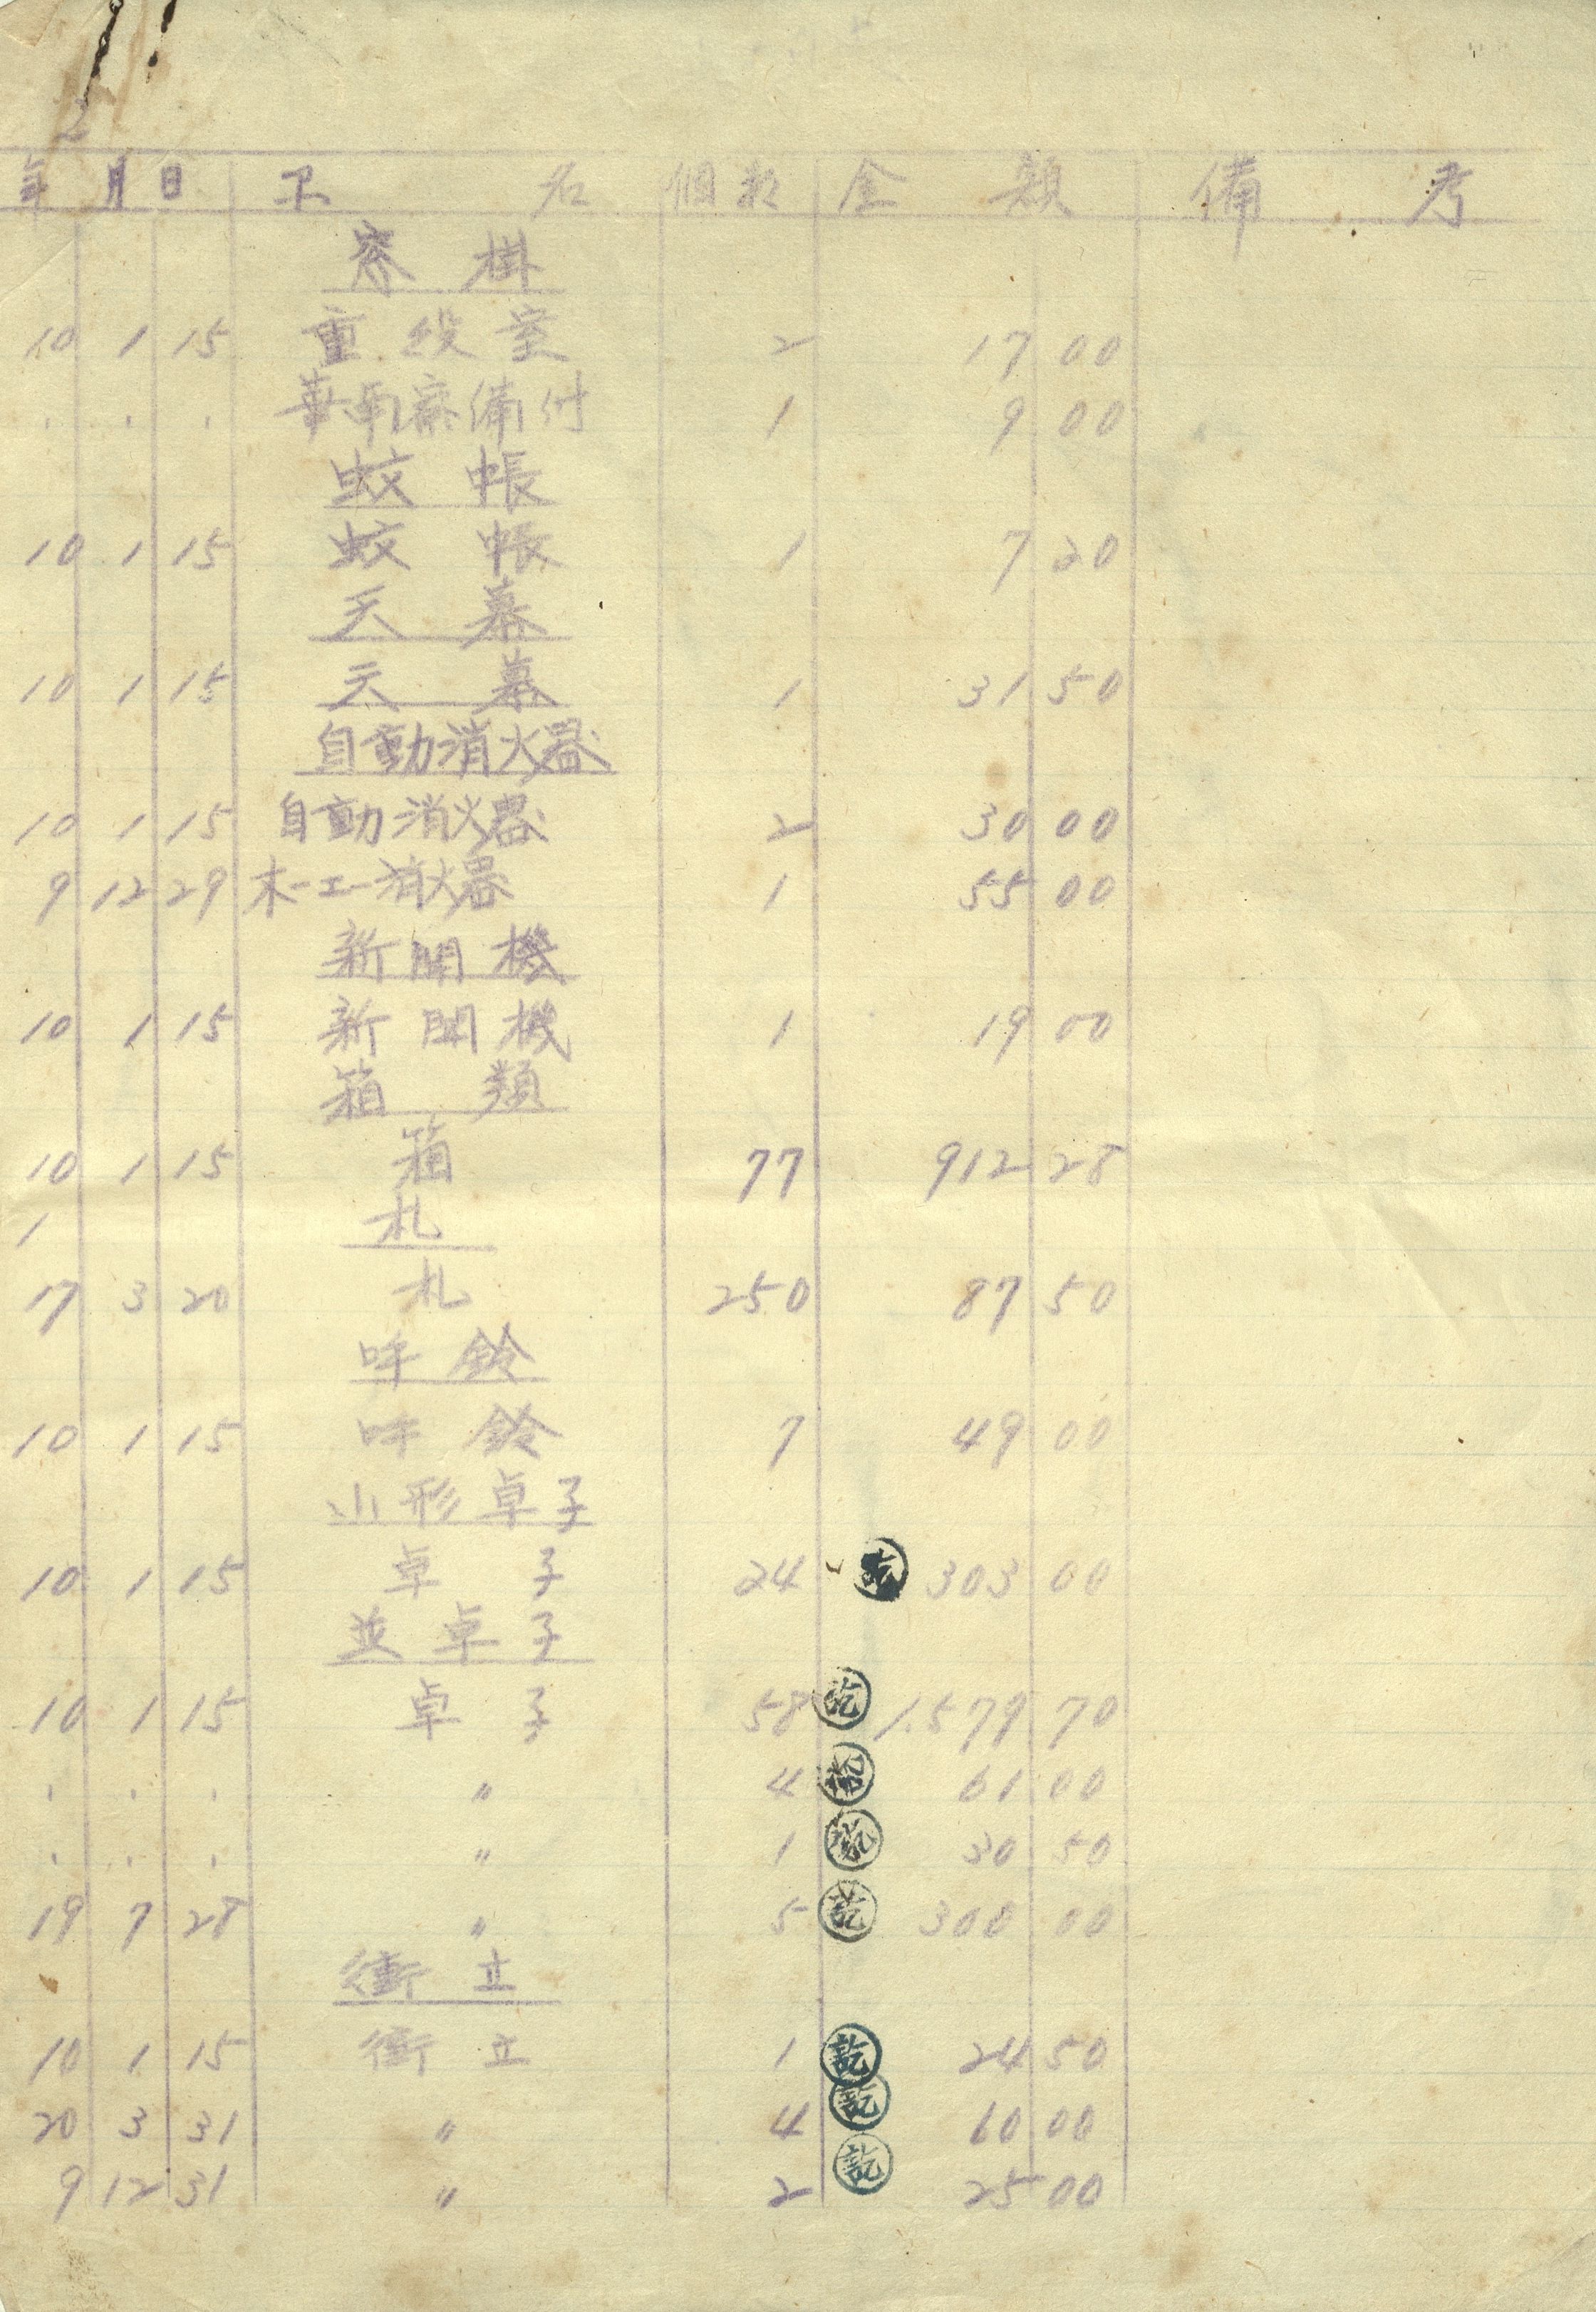 2
年 月 日 品 名 個数 金 額 備 考
掛
10 1 15 重役室 2 17 00
. . . 華南寮備付 1 9 00
蚊帳
10 1 15 蚊帳 1 7 20
天幕
10 1 15 天幕 1 31 50
自動消火器
10 1 15 自動消火器 2 30 00
9 12 29 ホーエー消火器 1 55 00
新聞機
10 1 15 新聞機 1 19 00
箱類
10 1 15 箱 77 912 28
1 札
17 3 20 札 250 87 50
呼鈴
10 1 15 呼鈴 7 49 00
山形卓子
10 1 15 卓子 24 訖 303 00
並卓子
10 1 15 卓子 58 訖 1,579 70
. . . 〃 4 訖 61 00
. . . 〃 1 訖 30 50
19 7 28 〃 5 訖 300 00
衝立
10 1 15 衝立 1 訖 24 50
20 3 31 〃 4 訖 60 00
9 12 31 〃 2 訖 25 00